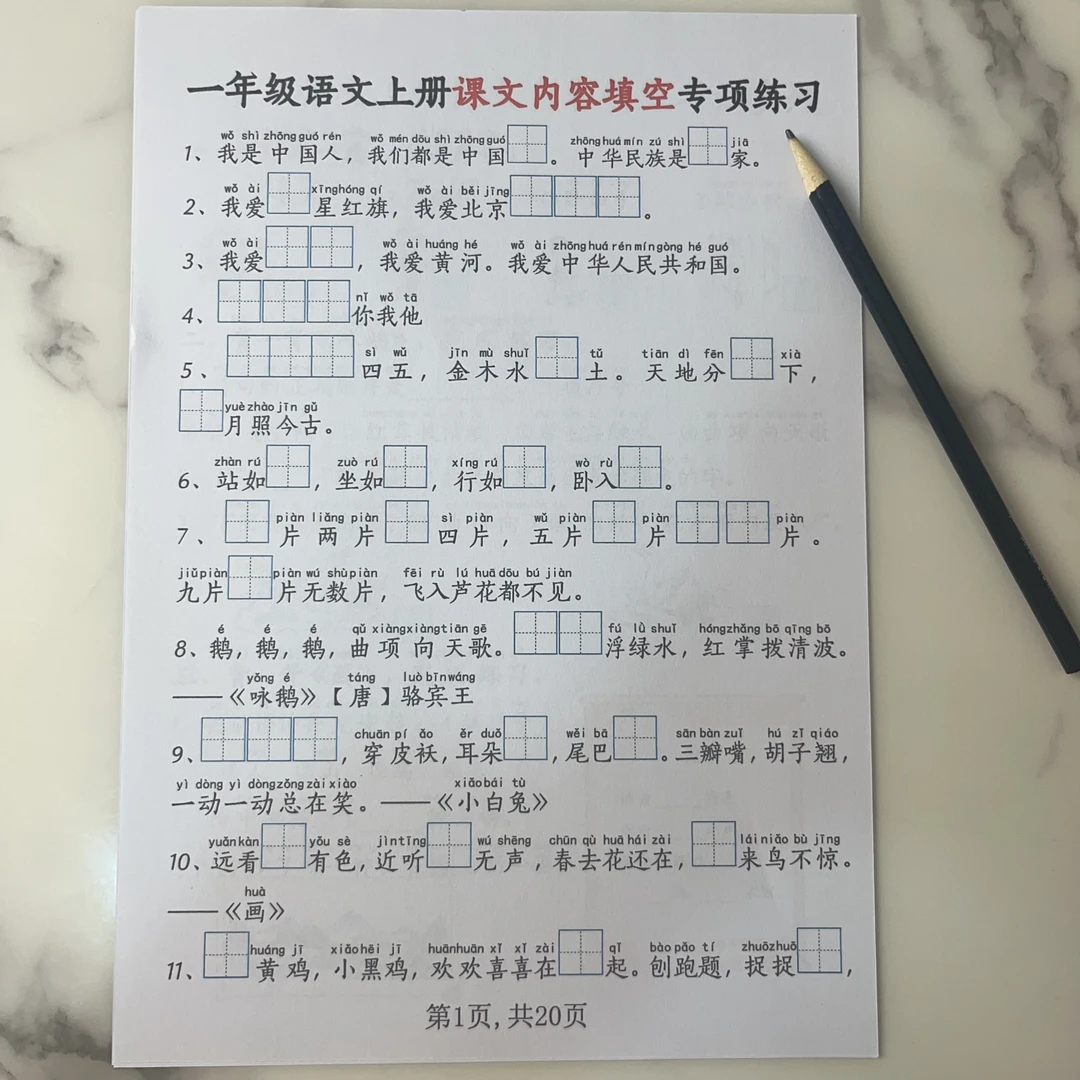 一年级语文上册课文内容填空专项练习
wǒ shì zhōng guó rén wǒ mén dōu shì zhōng guó zhōng huá mín zú shì jiā
1、我是中国人，我们都是中国□。中华民族是□家。
wǒ ài xīng hóng qí wǒ ài běi jīng
2、我爱□星红旗，我爱北京□□□。
wǒ ài wǒ ài huáng hé wǒ ài zhōng huá rén mín gòng hé guó
3、我爱□□，我爱黄河。我爱中华人民共和国。
nǐ wǒ tā
4、□□□你我他
sì wǔ jīn mù shuǐ tǔ tiān dì fēn xià
5、□□□四五，金木水□土。天地分□下，
yuè zhào jīn gǔ
□月照今古。
zhàn rú zuò rú xíng rú wò rù
6、站如□，坐如□，行如□，卧入□。
piàn liǎng piàn sì piàn wǔ piàn piàn piàn
7、□片两片□四片，五片□片□□片。
jiǔ piàn piàn wú shù piàn fēi rù lú huā dōu bú jiàn
九片□片无数片，飞入芦花都不见。
é é é qǔ xiàng xiàng tiān gē fú lǜ shuǐ hóng zhǎng bō qīng bō
8、鹅，鹅，鹅，曲项向天歌。□□浮绿水，红掌拨清波。
yǒng é táng luò bīn wáng
——《咏鹅》【唐】骆宾王
chuān pí ǎo ěr duǒ wěi bā sān bàn zuǐ hú zǐ qiáo
9、□□□，穿皮袄，耳朵□，尾巴□。三瓣嘴，胡子翘，
yì dòng yì dòng zǒng zài xiào xiǎo bái tù
一动一动总在笑。——《小白兔》
yuǎn kàn yǒu sè jìn tīng wú shēng chūn qù huā hái zài lái niǎo bù jīng
10、远看□有色，近听□无声，春去花还在，□来鸟不惊。
huà
——《画》
huáng jī xiǎo hēi jī huān huān xǐ xǐ zài qǐ bào pǎo tí zhuō zhuō
11、□黄鸡，小黑鸡，欢欢喜喜在□起。刨跑题，捉捉□，
第1页，共20页